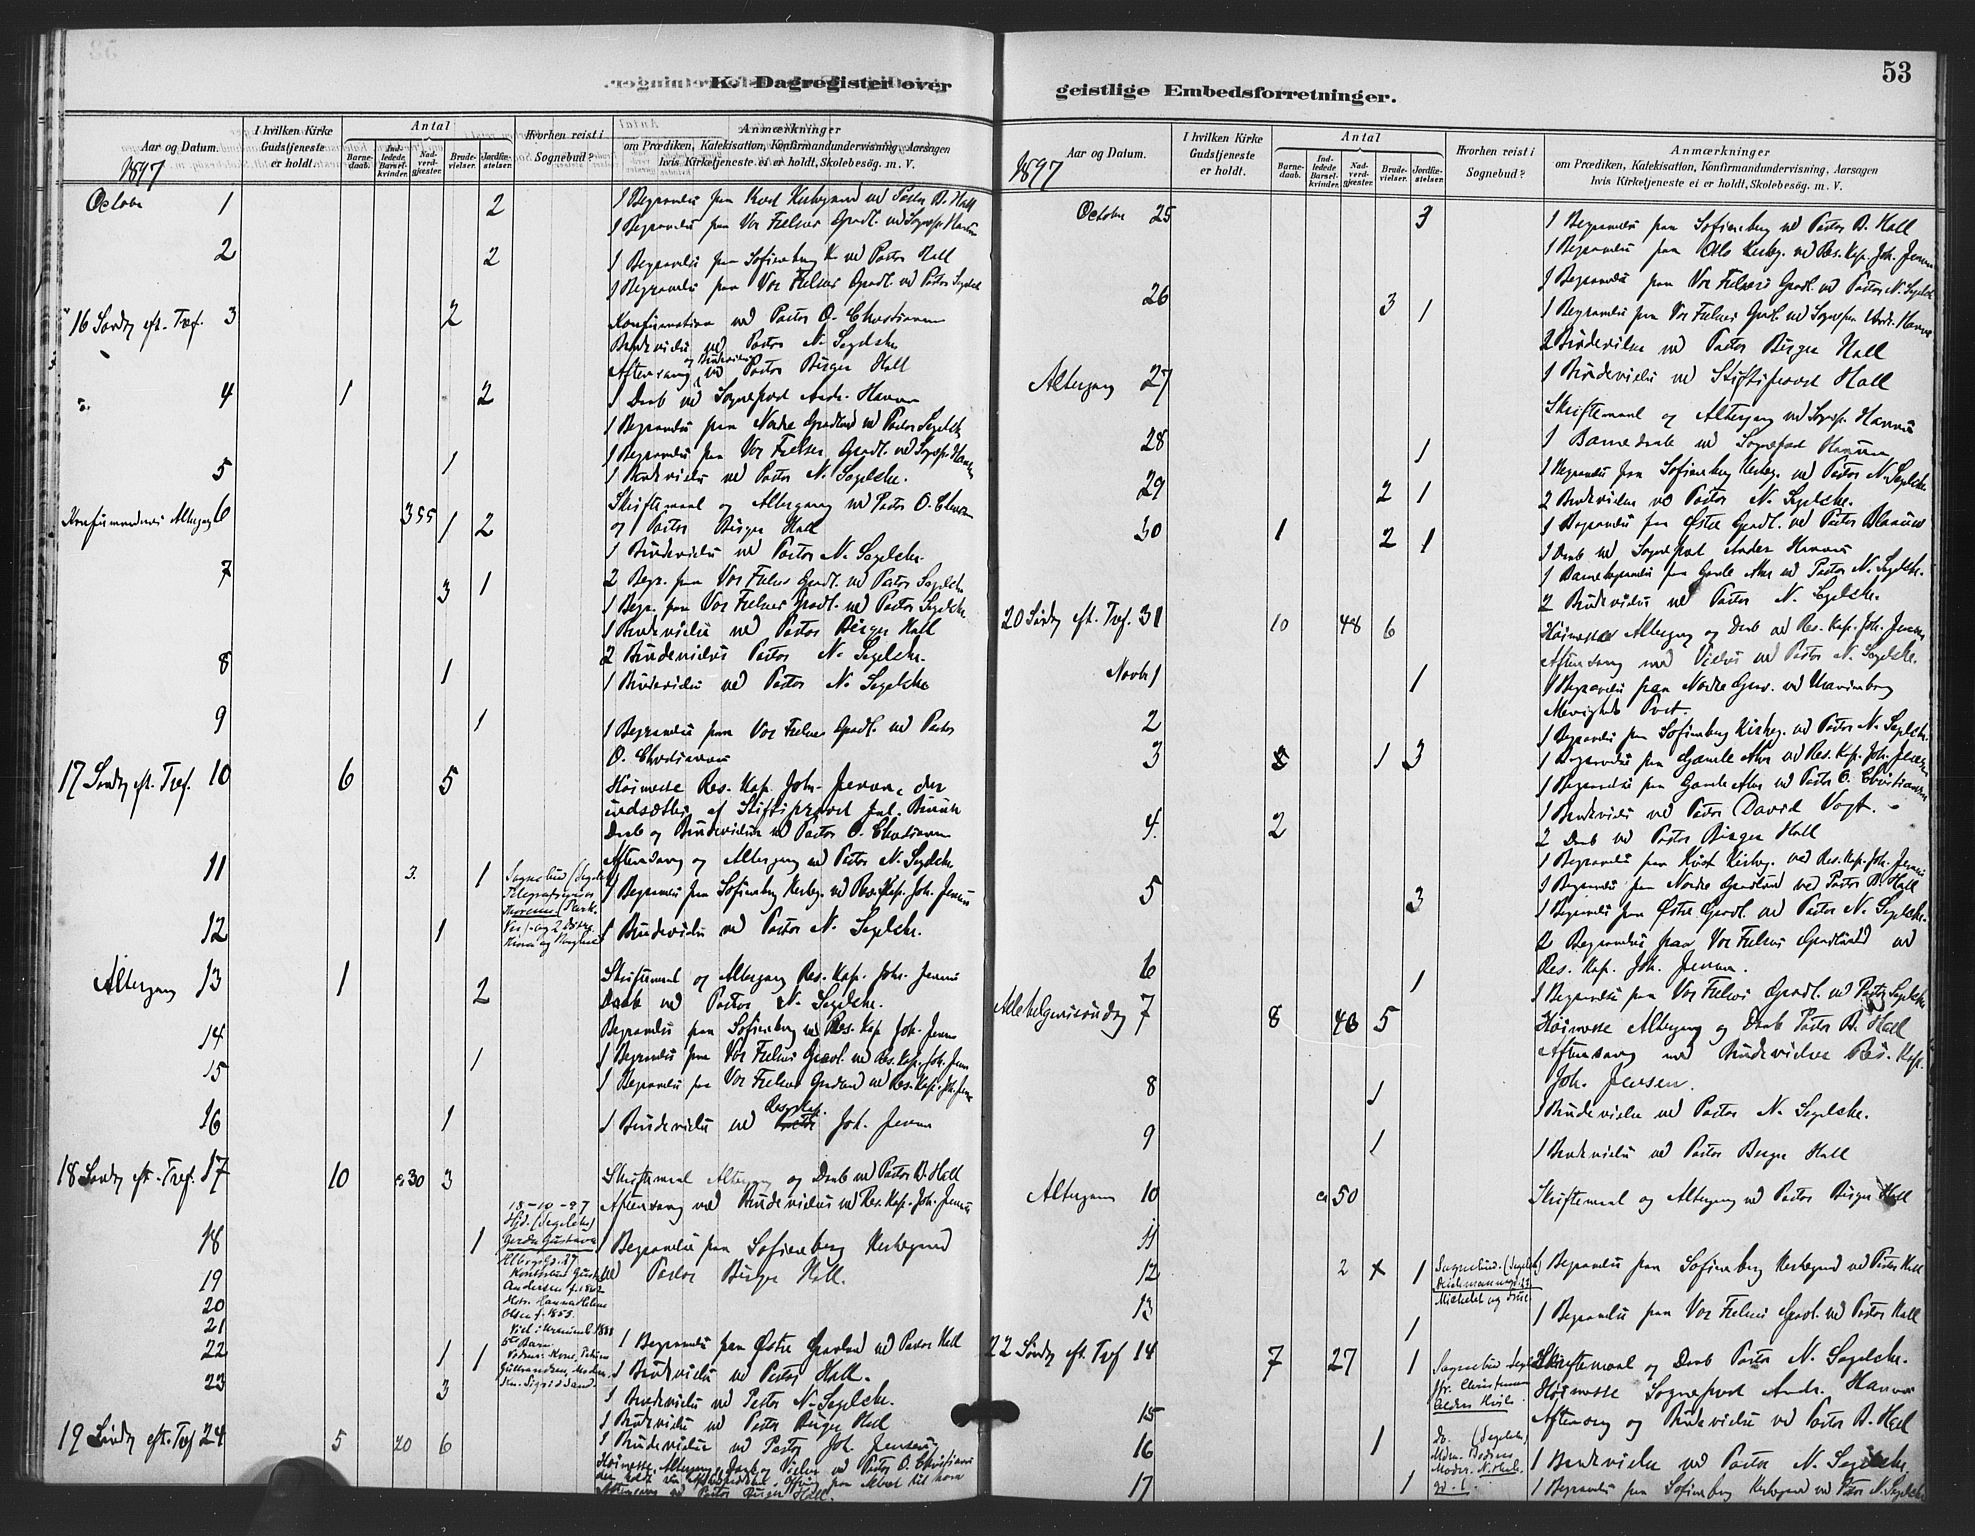 53
K. Dagregister over
geistlige Embedsforretninger.
Aar og Datum.
1897
I hvilken Kirke Gudstjeneste er holdt.
Antal
Barnedaab.
Indledede Barselkvinder.
Nadverdgjæster.
Brudevielser.
Jordfæstelser.
Hvorhen reist i Sognebud?
Anmærkninger
om Prædiken, Katekisation, Konfirmandundervisning, Aarsagen
hvis Kirketjeneste ei er holdt, Skolebesøg. m. V.
October 1 2 1 Begravelse fra Krist Kirkegaard ved Pastor B. Hall
1 Begravelse fra Vor Frelsers Gravl. ved Sognepr. Hansen
2 2 1 Begravelse fra Sofienberg K. ved Pastor Hall
1 Begravelse fra Vor Frelsers Gravl. ved Pastor Segelcke
16 Søndag eft. Tref. 3 2 Konfirmation ved Pastor O. Christiansen
Brudevielse ved Pastor N. Segelcke
Aftensang og Brudevielse ved Pastor Birger Hall
4 1 2 1 Daab ved Sogneprest Andr. Hansen
1 Begravelse fra Nordre Gravlund ved Pastor Segelcke
1 Begravelse fra Vor Frelsers Gravl. ved Sognepr. Hansen
5 1 1 Brudevielse ved Pastor N. Segelcke.
Konfirmandernes Altergang 6 355 1 2 Skriftemaal og Altergang ved Pastor O. Christiansen
og Pastor Birger Hall
1 Brudevielse ved Pastor N. Segelcke.
7 3 1 2 Begr. fra Vor Frelsers Gravl. ved Pastor Segelcke
1 Begr. fra Vor Frelsers Gravl. ved Pastor Segelcke
1 Brudevielse ved Pastor Birger Hall
2 Brudevielser Pastor N. Segelcke.
8 1 1 Brudevielse ved Pastor N. Segelcke
9 1 1 Begravelse fra Vor Frelsers Gravl. ved Pastor
O. Christiansen
17 Søndag eft. Tref. 10 6 5 Høimesse Res. Kap. Joh. Jensen, der
indsættes af Stiftsprovst Jul. Bruun
Daab og Brudevielse ved Pastor O. Christiansen
Aftensang og Altergang ved Pastor N. Segelcke
11 3. 1 Sognebud (Segelcke) 1 Begravelse fra Sofienberg Kirkeg. ved Res. Kap. Joh. Jensen
12 1 1 Brudevielse ved Pastor N. Segelcke.
Altergang 13 1 2 Skriftemaal og Altergang Res. Kap. Joh. Jensen
Daab ved Pastor N. Segelcke.
Begravelse fra Sofienberg ved Res. Kap. Joh. Jensen
14 1 Begravelse fra Vor Frelsers Gravl. ved Res. Kap. Joh. Jensen
15 1 1 Begravelse fra Vor Frelsers Gravlund ved Res. Kap. Joh. Jensen
16 1 1 Brudevielse ved Res. Kap. Joh. Jensen
18 Søndag eft. Tref. 17 10 ca 30 3 Skriftemaal Altergang og Daab ved Pastor B. Hall
Aftensang med Brudevielser ved Res. Kap. Joh. Jensen
18-10-97
Hjd. (Segelcke)
Gerda Gustava
18 1 1 Begravelse fra Sofienberg Kirkegaard
ved Pastor Birger Hall.
19
20
21
22 1 1 1 Begravelse fra Østre Gravlund ved Pastor Hall
1 Brudevielse ved Pastor Hall.
23 3 1 Brudevielse ved Pastor N. Segelcke.
1 Brudevielse ved Pastor Birger Hall
1 Brudevielse ved Pastor Joh. Jensen
19 Søndag eft. Tref 24 5 20 6 Høimesse, Altergang, Daab og Vielser ved Pastor O. Christiansen
Aftensang ved Pastor Birger Hall.
Aar og Datum.
1897
I hvilken Kirke Gudstjeneste er holdt.
Antal
Barnedaab.
Indledede Barselkvinder.
Nadverdgjæster.
Brudevielser.
Jordfæstelser.
Hvorhen reist i Sognebud?
Anmærkninger
om Prædiken, Katekisation, Konfirmandundervisning, Aarsagen
hvis Kirketjeneste ei er holdt, Skolebesøg. m. V.
October 25 3 1 Begravelse fra Sofienberg ved Pastor B. Hall
1 Begravelse fra Oslo Kirkeg. ved Res. Kap. Joh. Jensen
1 Begravelse fra Vor Frelsers Gravl. ved Pastor N. Segelcke
26 3 1 1 Begravelse fra Vor Frelsers Gravl. ved Sognepr. Andr. Hansen
2 Brudevielser ved Pastor Birger Hall
1 Brudevielse ved Stiftsprovst Hall
Altergang 27 Skriftemaal og Altergang ved Sognepr. Hansen
1 Barnedaab ved Sogneprest Hansen
28 1 1 Begravelse fra Sofienberg Kirkeg. ved Pastor N. Segelcke
29 2 1 2 Brudevielser ved Pastor N. Segelcke.
1 Begravelse fra Østre Gravl. ved Pastor Blaauw
30 1 2 1 1 Daab ved Sogneprest Anders Hansen
1 Barnebegravelse fra Gamle Aker ved Pastor N. Segelcke.
2 Brudevielser ved Pastor N. Segelcke.
20 Søndag eft. Tref. 31 10 48 6 Høimesse Altergang og Daab ved Res. Kap. Joh. Jensen
Aftensang med Vielser ved Pastor N. Segelcke.
Novbr 1 1 1 Begravelse fra Nordre Grav. ved
Menigheds Prest.
2 1 Begravelse fra Sofienberg Kirkeg. ved Pastor N. Segelcke.
3 1 3 1 Begravelse fra Gamle Aker ved Res. Kap. Joh. Jensen
1 Begravelse fra Gamle Aker ved Pastor O. Christiansen
1 Brudevielse ved Pastor David Vogt.
4. 2 2 Daab ved Pastor Birger Hall
1 Begravelse fra Krist Kirkeg. ved Res. Kap. Joh. Jensen
1 Begravelse fra Nordre Gravlund ved Pastor B. Hall
5 3 1 Begravelse fra Østre Gravl. ved Pastor N. Segelcke.
2 Begravelser fra Vor Frelsers Gravlund ved
Res. Kap. Joh. Jensen.
6 1 1 Begravelse fra Vor Frelsers Gravl. ved Pastor Segelcke
Allehelgensøndag 7 8 46 5 Høimesse Altergang og Daab Pastor B. Hall
Aftensang med Brudevielser Res. Kap.
Joh. Jensen.
8 1 1 Brudevielse ved Pastor N. Segelcke.
9 1 1 Brudevielse ved Pastor Birger Hall
Altergang 10 ca 50 Skriftemaal og Altergang ved Pastor Birger Hall
11
12 2 x 1 Sognebud. (Segelcke) 1 Begravelse fra Sofienberg Kirkegaard ved Pastor Hall
Michelet og Frue
13 1 1 Begravelse fra Vor Frelsers Gravl. ved Pastor Hall
22 Søndag eft. Tref 14 7 27 1 Sognebud Segelcke Skriftemaal og Daab Pastor N. Segelcke.
Høimesse Sogneprest Andr. Hansen
Aftensang og Brudevielse ved Pastor B. Hall
15
16 1 Do. (Segelcke) 1 Brudevielse ved Pastor N. Segelcke.
17 1 1 Begravelse fra Sofienberg Kirkegaard ved Pastor N. Segelcke